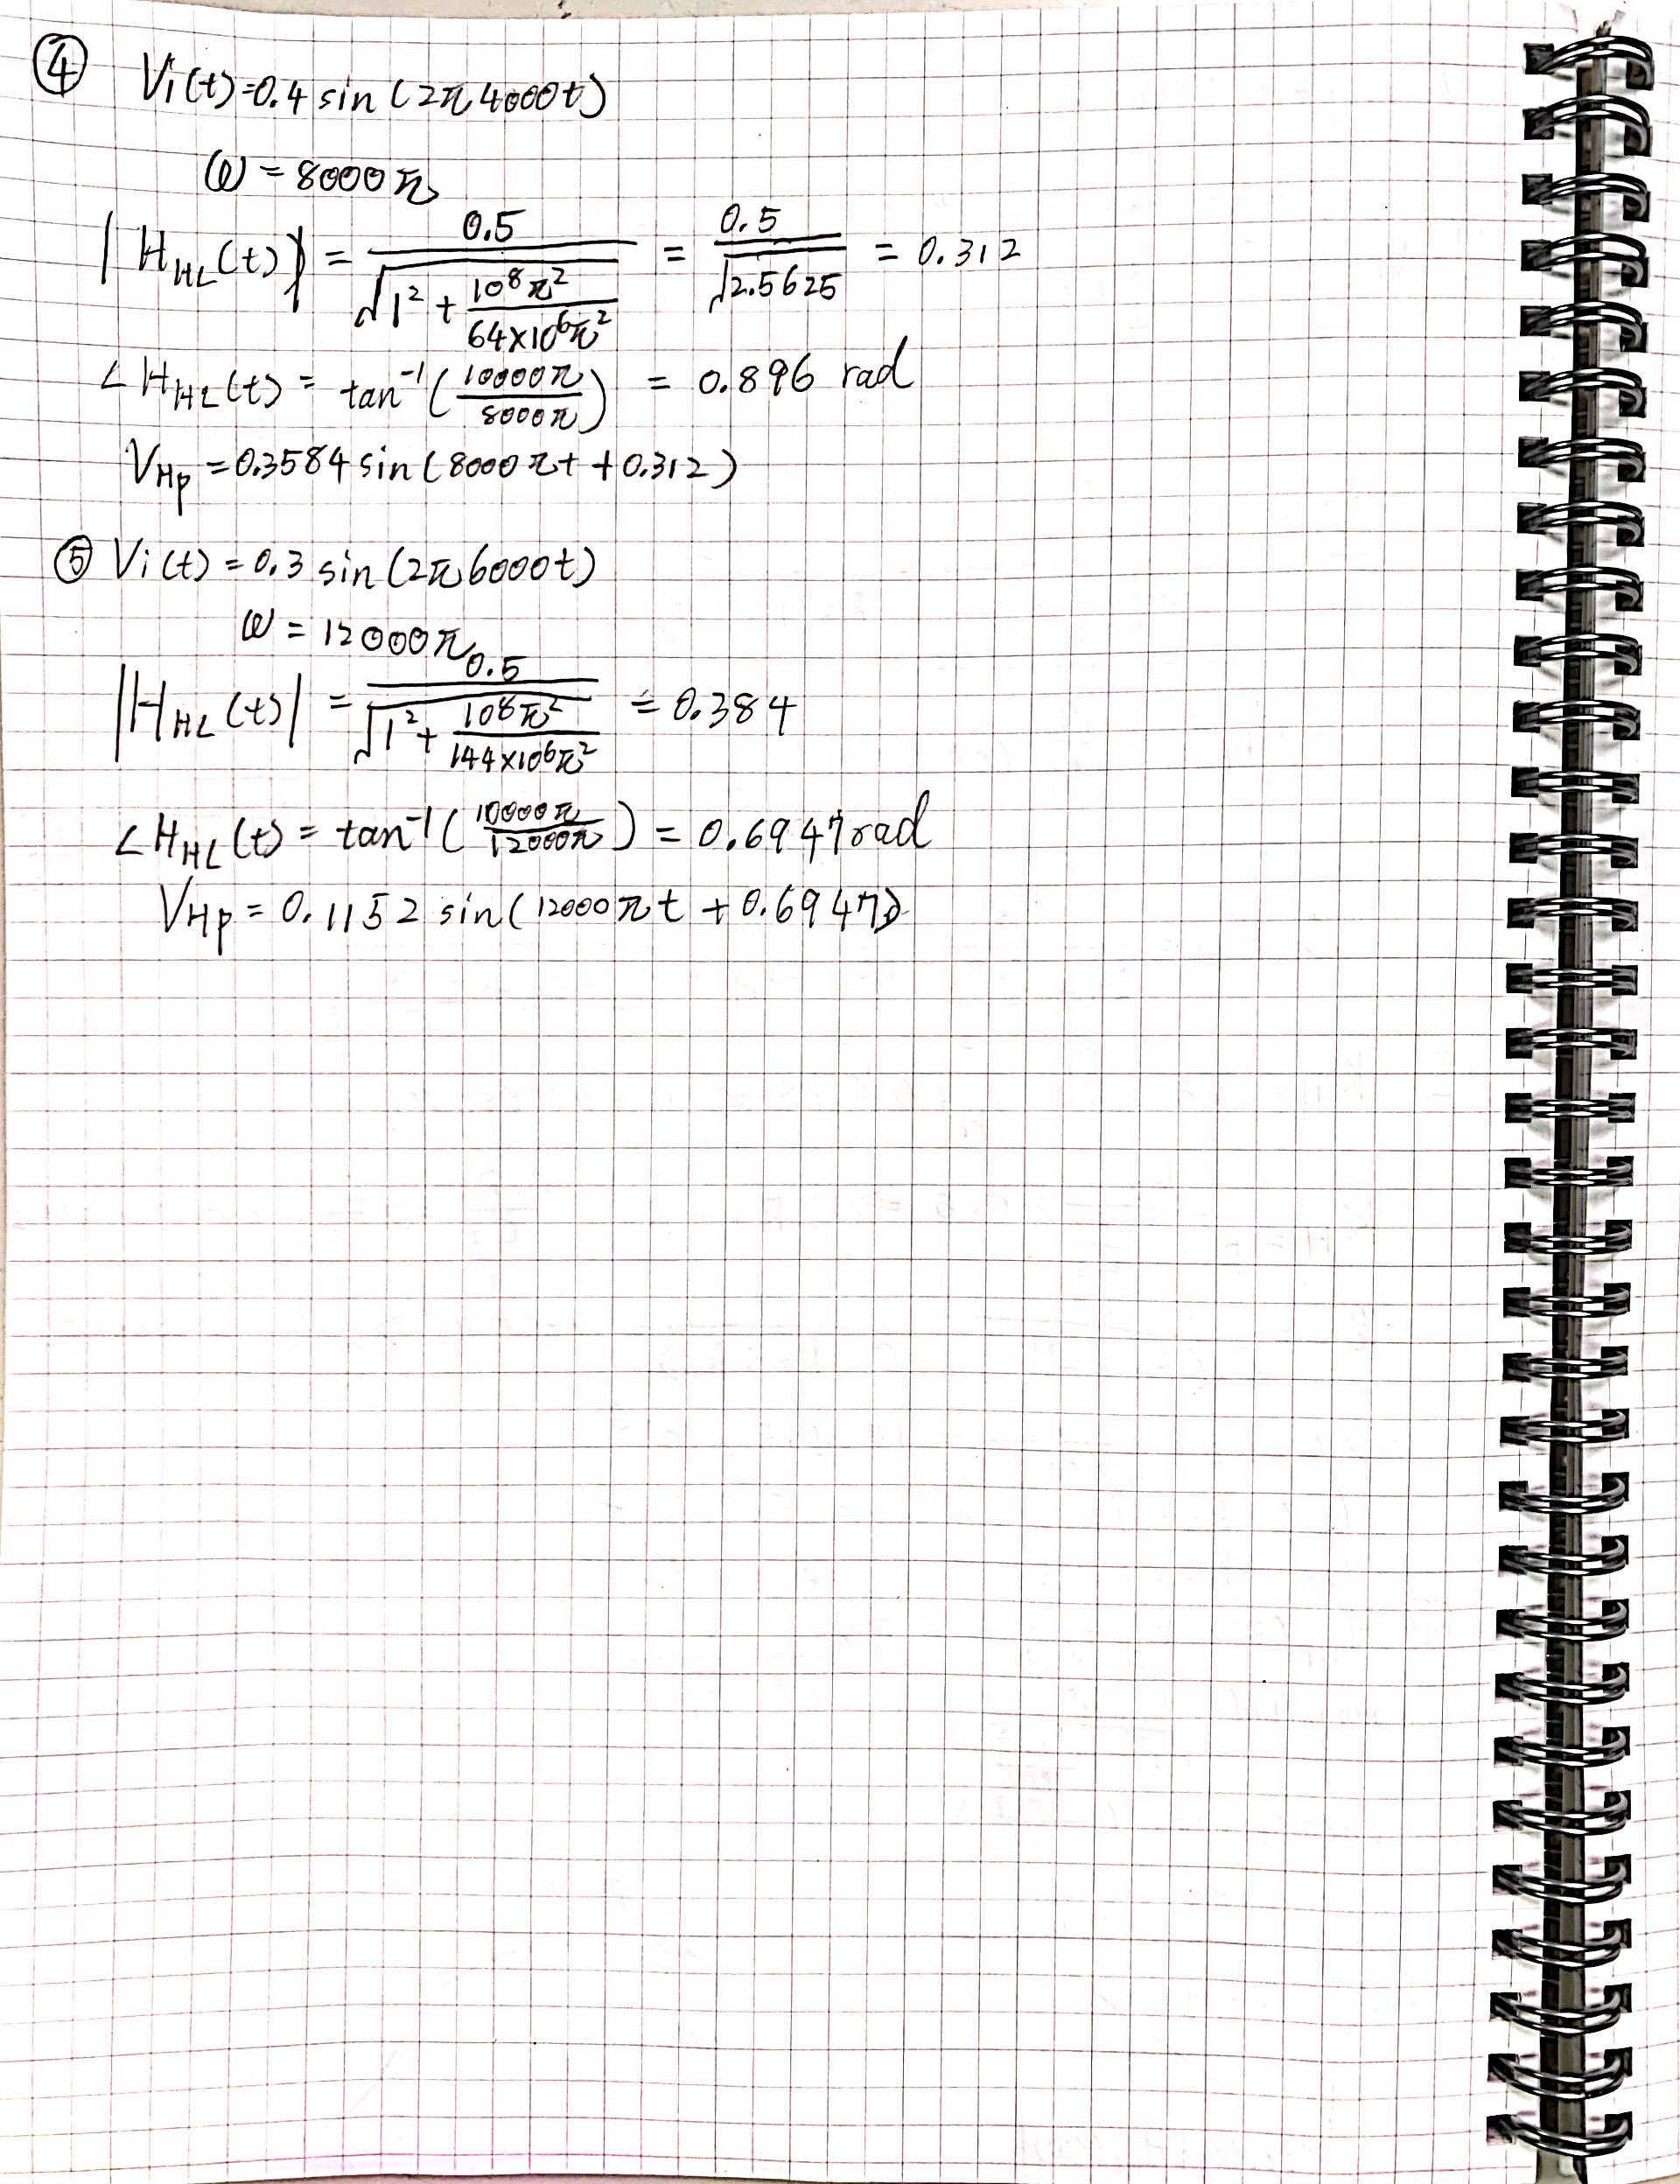 ④ Vi(t)=0.4 sin(2π4000t)
ω = 8000π
|H_HL(t)| = 0.5 / √(1² + 10⁸π² / 64×10⁶π²) = 0.5 / √2.5625 = 0.312
∠H_HL(t) = tan⁻¹(10000π / 8000π) = 0.896 rad
V_Hp = 0.3584 sin(8000πt + 0.312)
⑤ Vi(t) = 0.3 sin(2π6000t)
ω = 12000π
|H_HL(t)| = 0.5 / √(1² + 10⁸π² / 144×10⁶π²) = 0.384
∠H_HL(t) = tan⁻¹(10000π / 12000π) = 0.6947 rad
V_Hp = 0.1152 sin(12000πt + 0.6947)